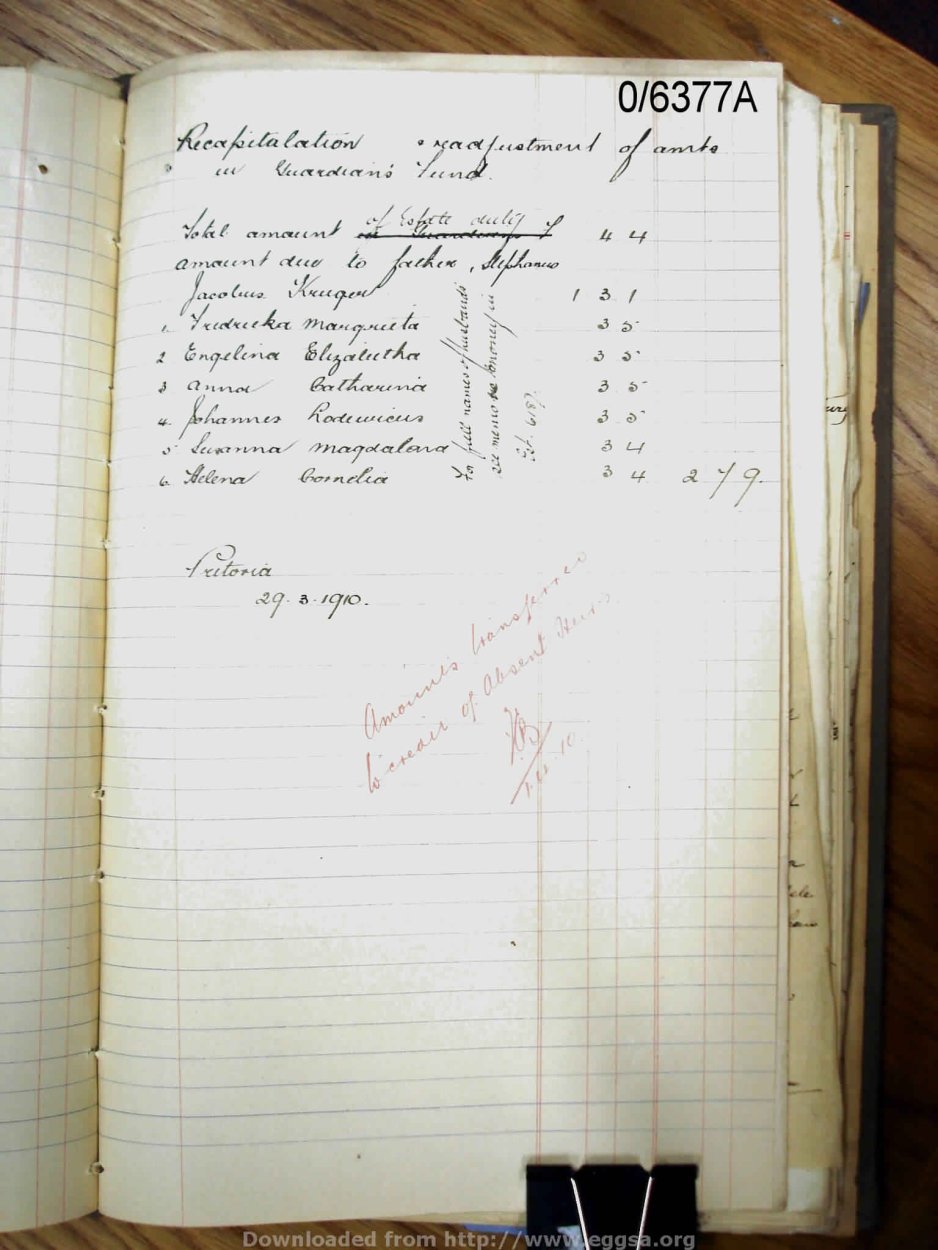 0/6377A
Recapitulation & readjustment of amts
in Guardian's Fund.
of Estate duty
Total amount 4 4
amount due to father, Stephanus
Jacobus Kruger 1 3 1
1. Fredrieka Margrieta 3 5
2 Engelina Elizabetha 3 5
3 Anna Catharina 3 5
4. Johannes Lodewicus 3 5
5 Susanna Magdalena 3 4
6 Helena Cornelia 3 4 2 7 9.
For full names of husbands
see memo re money in
Pretoria
29. 3. 1910.
Amounts transferred
to credit of Absent Heirs
Downloaded from http://www.eggsa.org